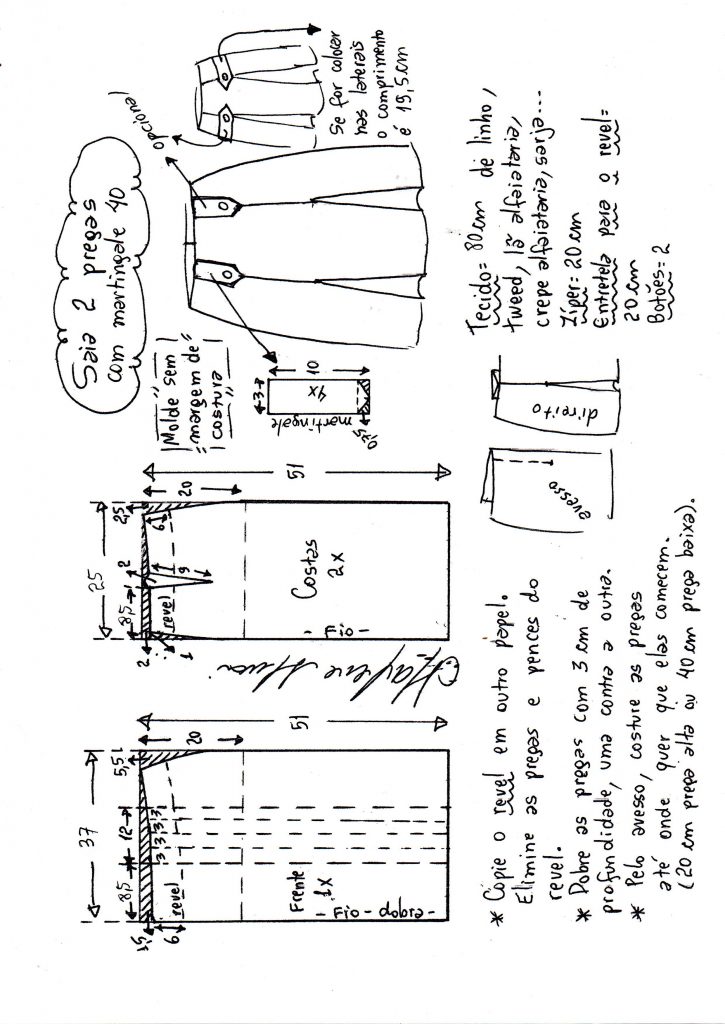 Saia 2 pregas
com martingale 40
opcional
Se for colocar
nas laterais
o comprimento
é 19,5 cm
"Molde sem"
margem de
costura
3
10
4x
martingale
0,75
37
8,5
12
5,5
1,5
6
3 3 3 3
revel
20
51
Frente
1x
- Fio - dobra -
25
8,5
2
2,5
2
1
6
9
revel
20
51
Costas
2x
- Fio -
Marlene Mukai
Tecido= 80 cm de linho,
tweed, lã alfaiataria,
crepe alfaiataria, sarja...
Zíper= 20 cm
Entretela para o revel=
20 cm
Botões= 2
avesso
direito
* Copie o revel em outro papel.
Elimine as pregas e pences do
revel.
* Dobre as pregas com 3 cm de
profundidade, uma contra a outra.
* Pelo avesso, costure as pregas
até onde quer que elas comecem.
(20 cm prega alta ou 40 cm prega baixa).